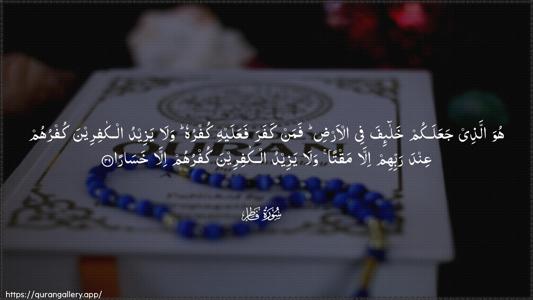 هُوَ الَّذِىۡ جَعَلَـكُمۡ خَلٰٓٮِٕفَ فِى الۡاَرۡضِ ؕ فَمَنۡ كَفَرَ فَعَلَيۡهِ كُفۡرُهٗ ؕ وَلَا يَزِيۡدُ الۡـكٰفِرِيۡنَ كُفۡرُهُمۡ
عِنۡدَ رَبِّهِمۡ اِلَّا مَقۡتًا ۚ وَلَا يَزِيۡدُ الۡـكٰفِرِيۡنَ كُفۡرُهُمۡ اِلَّا خَسَارًا‏
QURAN
سُوۡرَةُ فَاطِر
https://qurangallery.app/